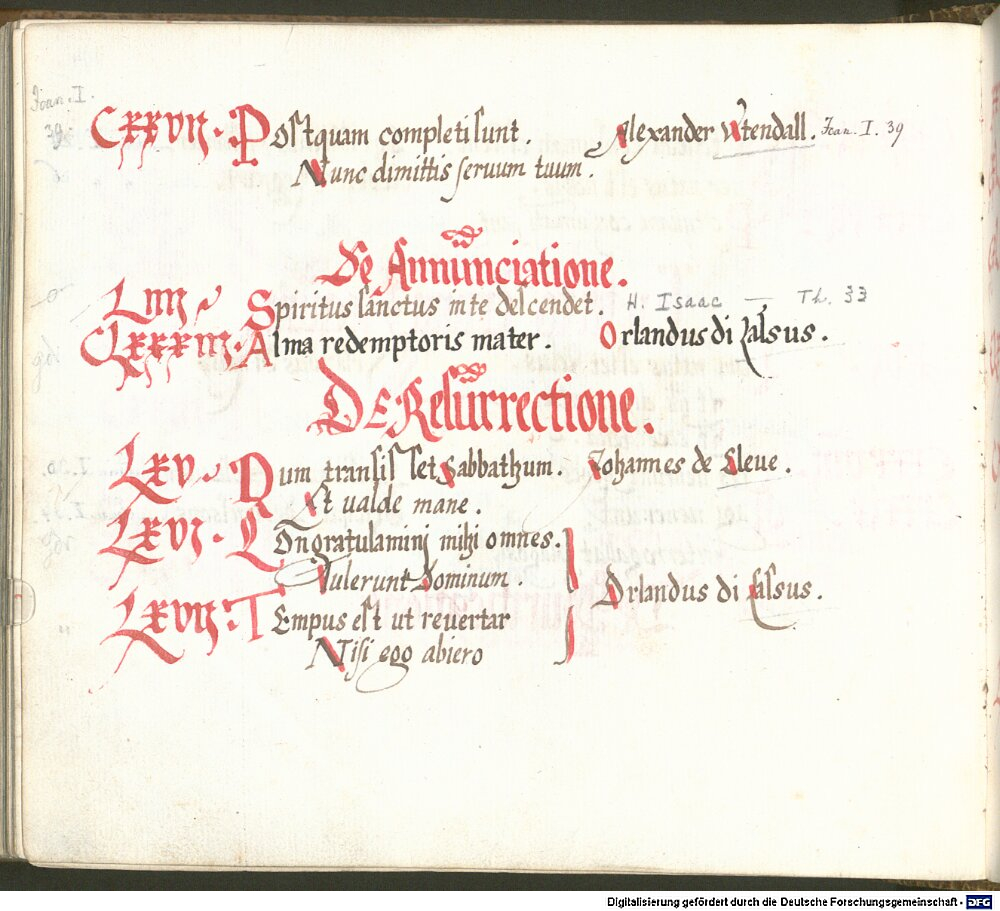 Joan. I.
39
CXXVII. Postquam completi sunt. Alexander Vtendall. Joan. I. 39
Nunc dimittis seruum tuum.
De Annunciatione.
LIIII Spiritus sanctus in te descendet. H. Isaac — Th. 33
CLXXXIII. Alma redemptoris mater. Orlandus di Lassus.
De Resurrectione.
LXV. Dum transisset Sabbathum. Johannes de Cleue.
Et ualde mane.
LXVI. Congratulamini mihi omnes.
Tulerunt Dominum.
Orlandus di Lassus.
LXVII. Tempus est ut reuertar
Nisi ego abiero
Digitalisierung gefördert durch die Deutsche Forschungsgemeinschaft - DFG